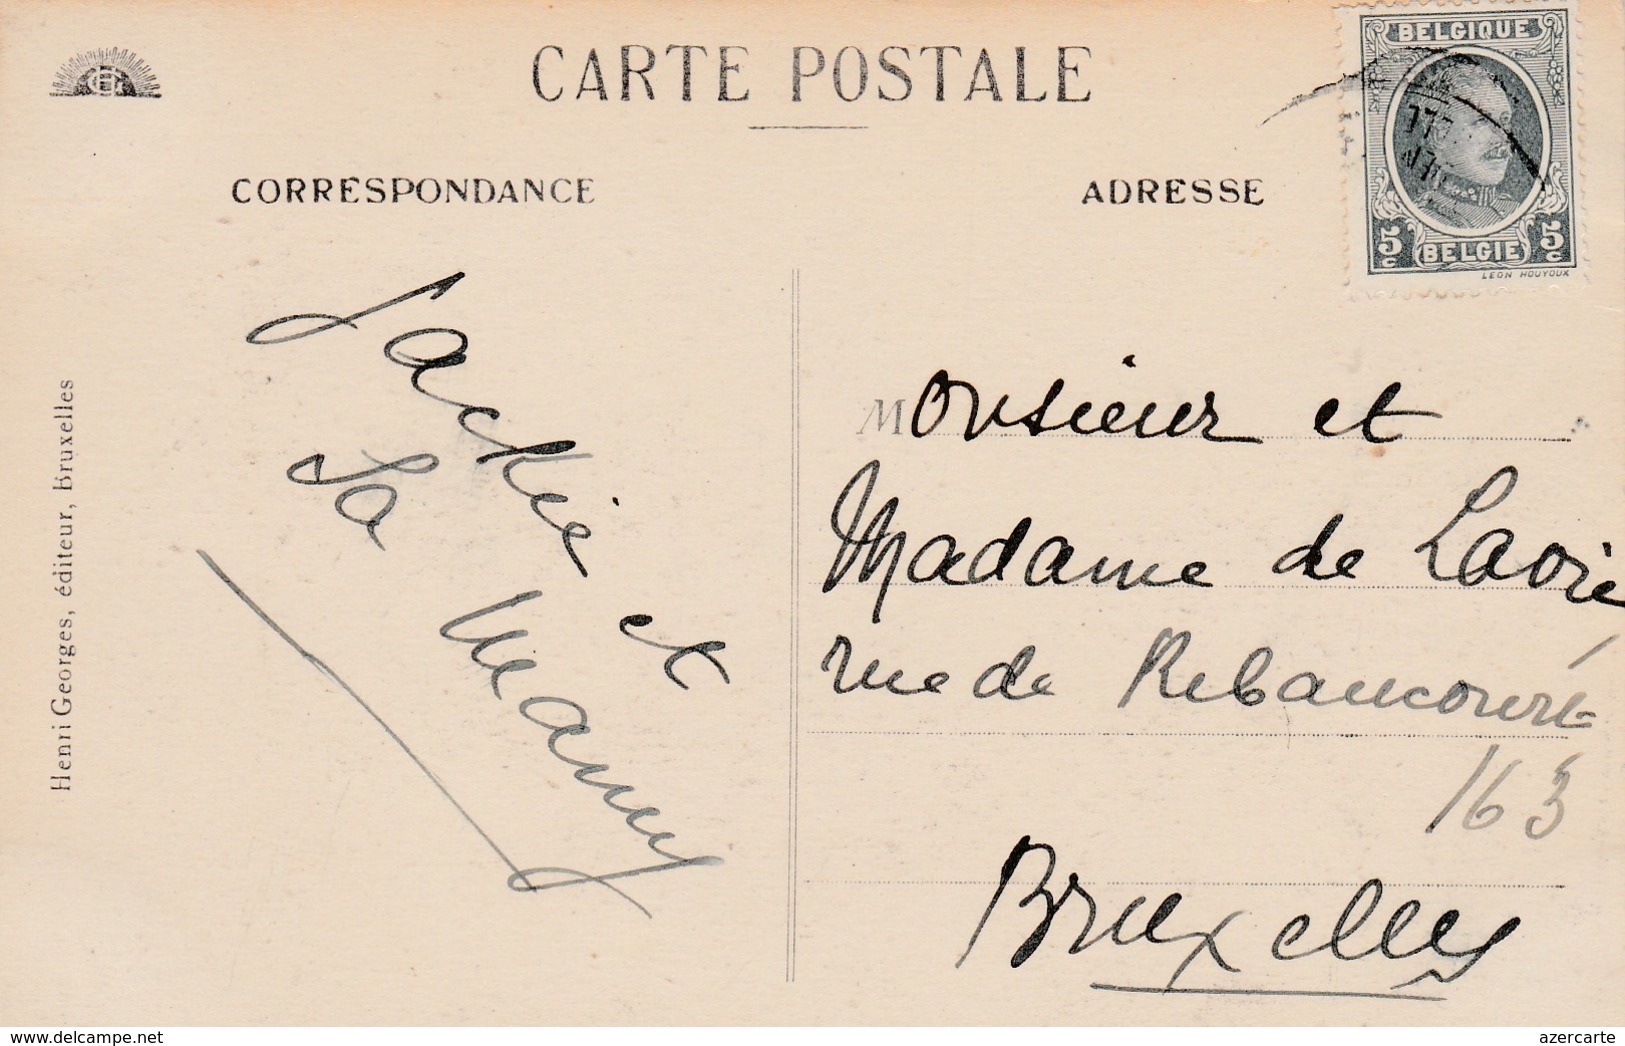 CARTE POSTALE
CORRESPONDANCE
ADRESSE
BELGIQUE
5c BELGIE 5c
LEON HOUYOUX
Jackie et
Sa Mamy
Henri Georges, éditeur, Bruxelles
Monsieur et
Madame de Lavie
rue de Ribaucourt
163
Bruxelles
www.delcampe.net
azercarte